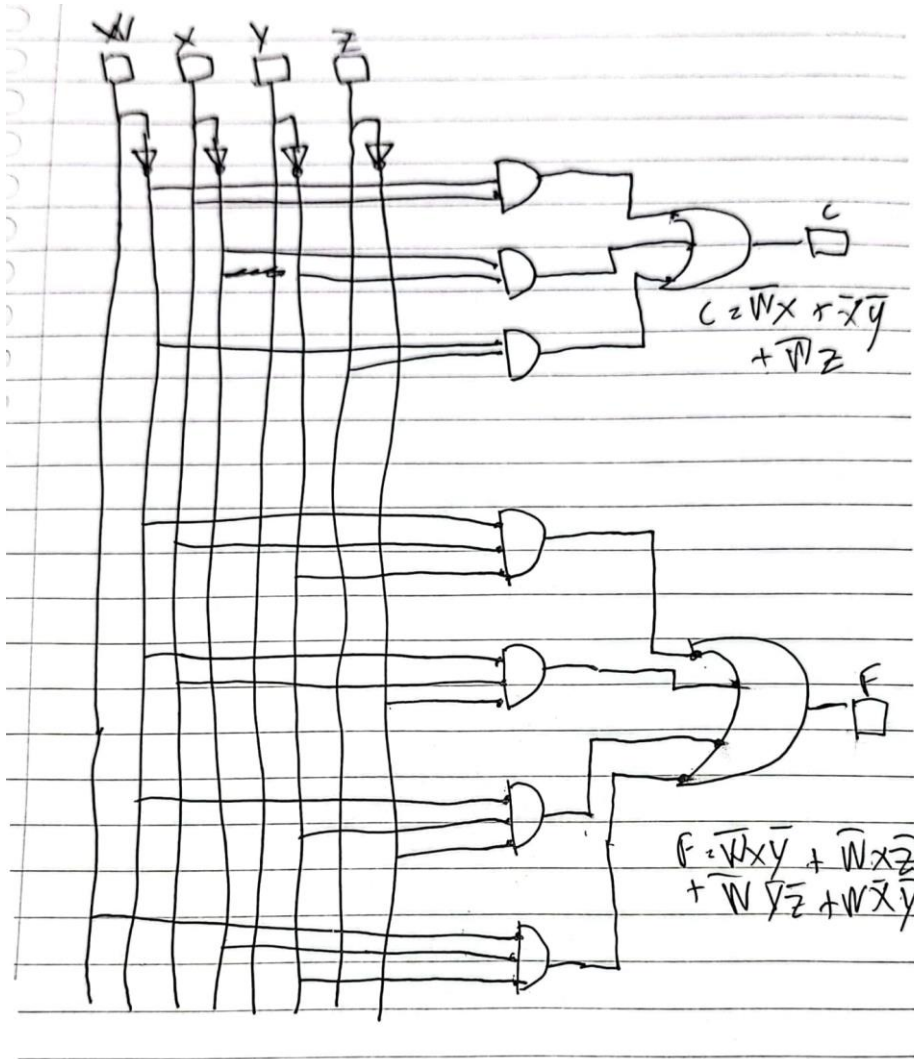 W X Y Z
C
C = W̅X + X̅Y̅
+ W̅Z
F
F = W̅XY̅ + W̅XZ̅
+ W̅Y̅Z̅ + WX̅Y̅